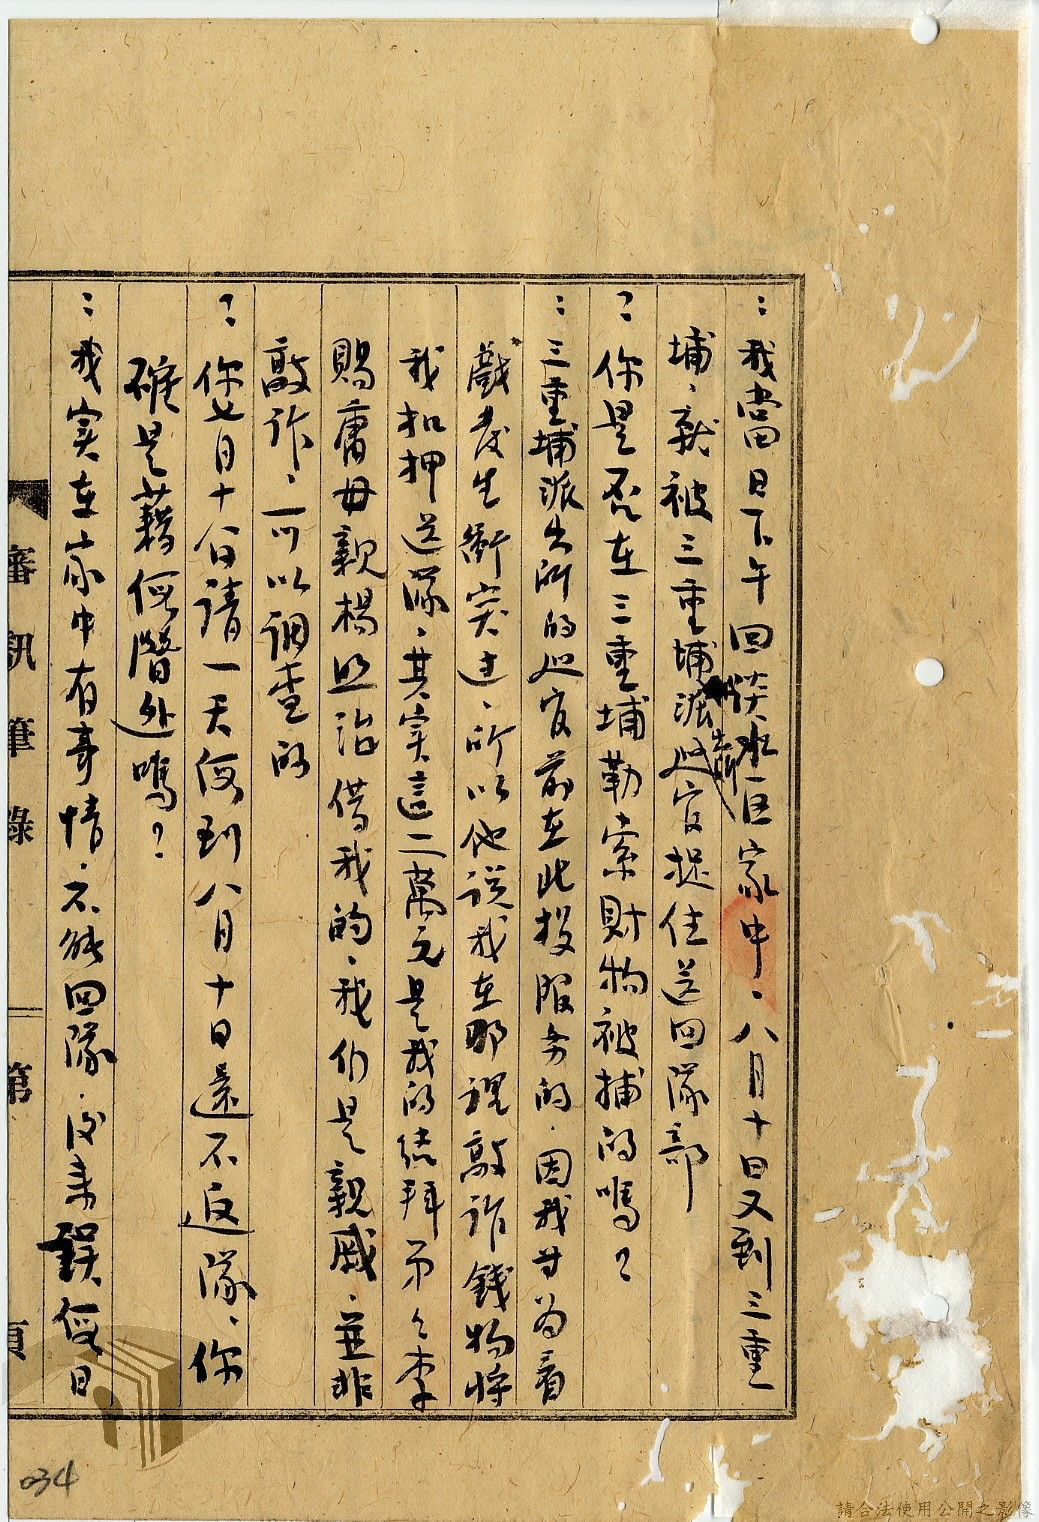 ：我當日下午回淡水區家中、八月十日又到三重
埔、就被三重埔派巡官捉住送回隊部
？：你是否在三重埔勒索財物被捕的嗎？
：三重埔派出所的巡官前在此投服务的、因我廿为看
戲发生衝突过、所以他説我在那裡敲詐錢物将
我扣押送隊、其实這二萬元是我的结拜弟々李
賜庸母親楊 治借我的、我们是親戚、並非
敲詐、可以調查的
？：你七月十八日請一天假到八月十日還不返隊、你
確是藉假潛外嗎？
：我实在家中有事情、不能回隊、 誤假日
審訊筆錄
第
頁
034
請合法使用公開之影像